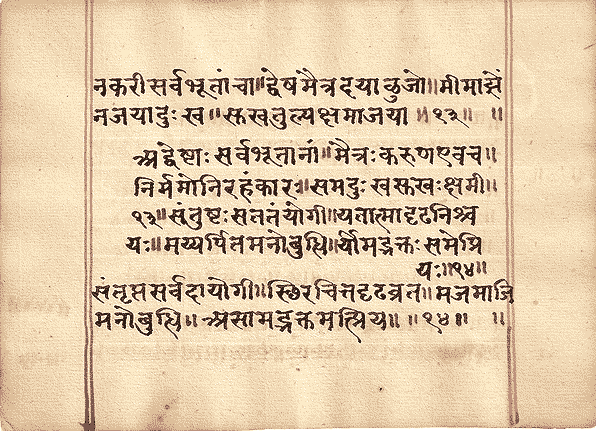 नकरी सर्वभूतांचा॥द्वेष मैत्र दया ळु जो॥मी माझें
न जया दुःख॥सुख तुल्य क्षमा जया ॥१३॥ ॥
अद्वेष्टाः सर्वभूतानां॥मैत्रः करुण एव च॥
निर्ममो निरहंकारः॥समदुःखसुखः क्षमी॥
१३॥ सतुष्टः सततं योगी॥यतात्मा दृढनिश्च
यः॥मय्यर्पितमनोबुद्धि॥र्यो मद्भक्तः स मे प्रि
यः॥१४॥
संतृप्त सर्वदा योगी॥स्थिरचित्त दृढव्रत॥मज माजि
मनोबुद्धि॥असा मद्भक्त मत्प्रिय॥॥१४॥ ॥